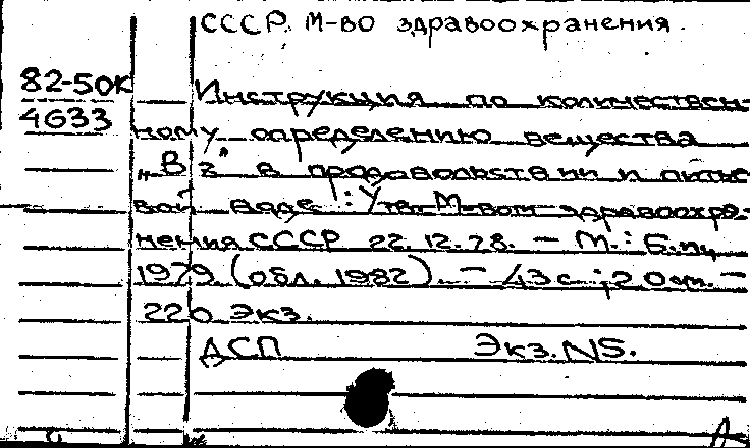 СССР. М-во здравоохранения.
82-50к Инструкция по количествен-
4633 ному определению вещества
„В з" в продовольствии и питье-
вой воде: Утв. М-вом здравоохра-
нения СССР 22.12.78. – М.: Б.и.,
1979 (обл. 1982). – 43 с.; 20 см. –
220 экз.
ДСП Экз. N5.